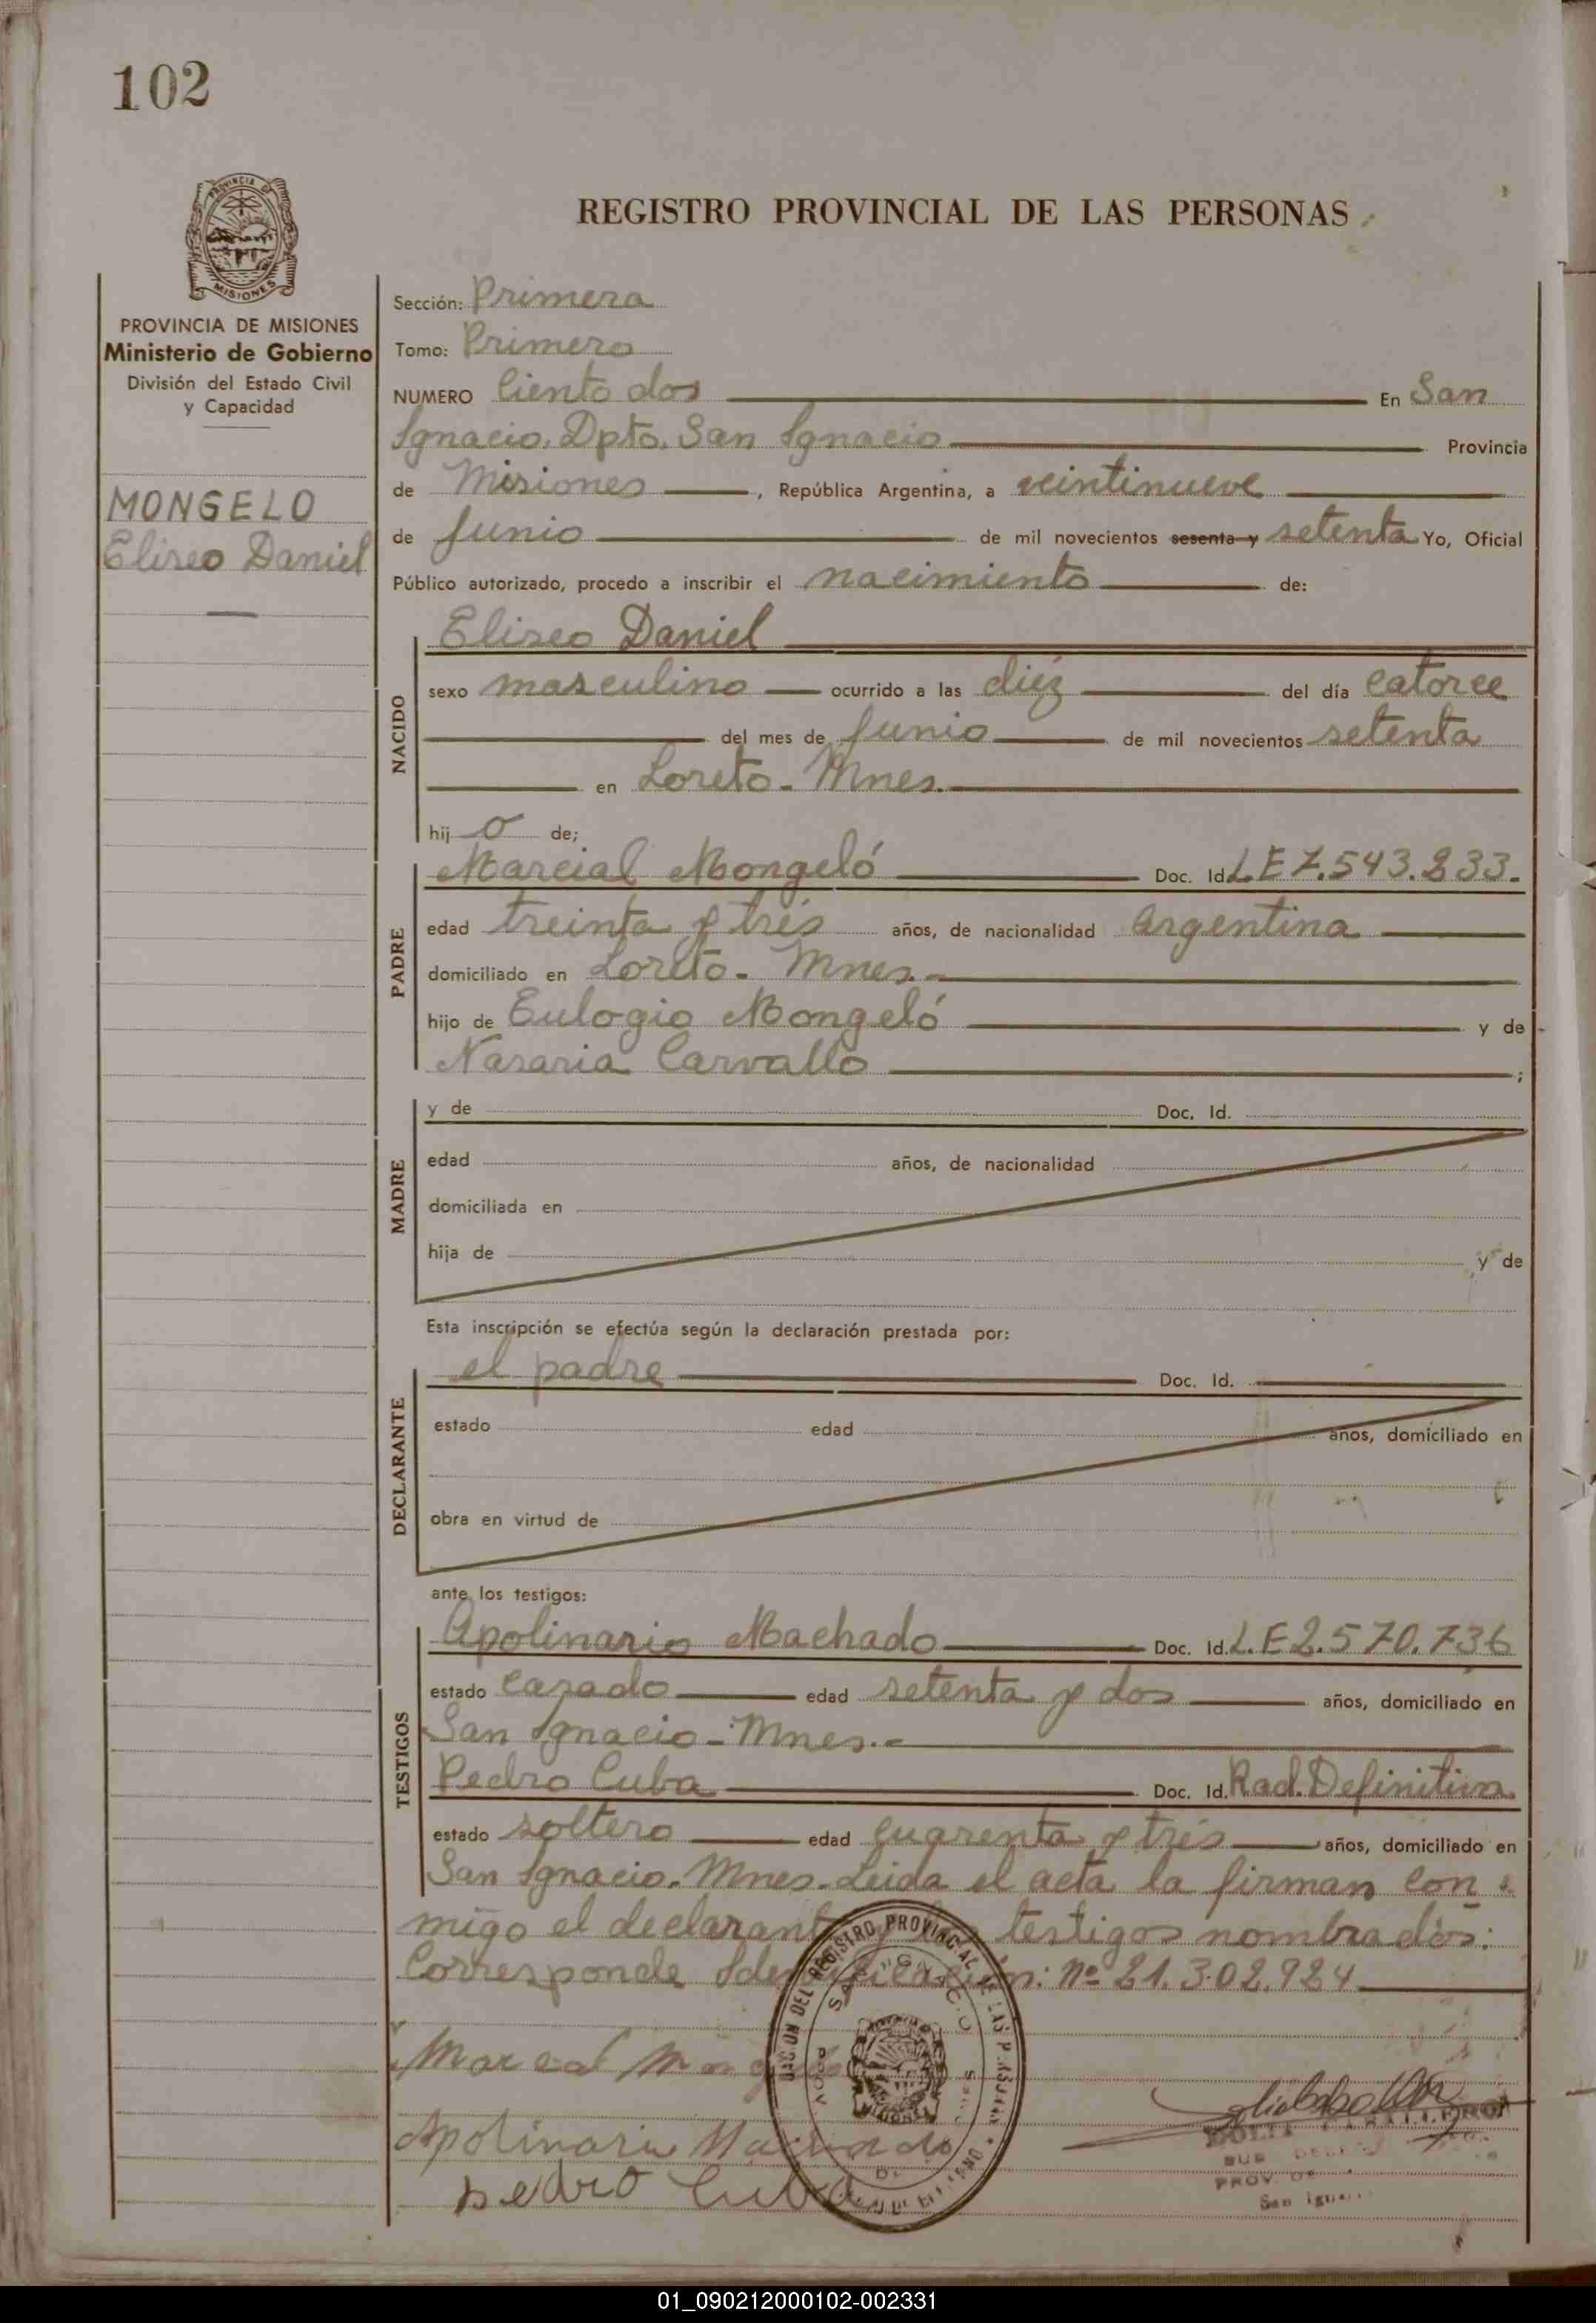 102
PROVINCIA DE
MISIONES
REGISTRO PROVINCIAL DE LAS PERSONAS
PROVINCIA DE MISIONES
Ministerio de Gobierno
División del Estado Civil
y Capacidad
MONGELO
Eliseo Daniel
Sección: Primera
Tomo: Primero
NUMERO Ciento dos En San
Ignacio, Dpto. San Ignacio Provincia
de Misiones, República Argentina, a veintinueve
de Junio de mil novecientos sesenta y setenta Yo, Oficial
Público autorizado, procedo a inscribir el nacimiento de:
NACIDO
Eliseo Daniel
sexo masculino ocurrido a las diéz del día catorce
del mes de Junio de mil novecientos setenta
en Loreto - Mnes.
hijo de;
PADRE
Marcial Mongeló Doc. Id. L E 7.543.833.
edad treinta y trés años, de nacionalidad Argentina
domiciliado en Loreto - Mnes.-
hijo de Eulogio Mongeló y de
Nasaria Carvallo ;
MADRE
y de Doc. Id.
edad años, de nacionalidad
domiciliada en
hija de y de
Esta inscripción se efectúa según la declaración prestada por:
DECLARANTE
el padre Doc. Id.
estado edad años, domiciliado en
obra en virtud de
ante los testigos:
TESTIGOS
Apolinario Machado Doc. Id. L.E 2.570.736
estado casado edad setenta y dos años, domiciliado en
San Ignacio - Mnes.-
Pedro Cuba Doc. Id. Rad. Definitiva
estado soltero edad cuarenta y trés años, domiciliado en
San Ignacio. Mnes. Leida el acta la firman con
migo el declarante testigos nombrados:
Corresponde Identificación: Nº 21.302.924
REGISTRO PROVINCIAL DE LAS
SAN IGNACIO
Apolinario Machado
Pedro Cuba
PROV. DE
San Igna
01_090212000102-002331